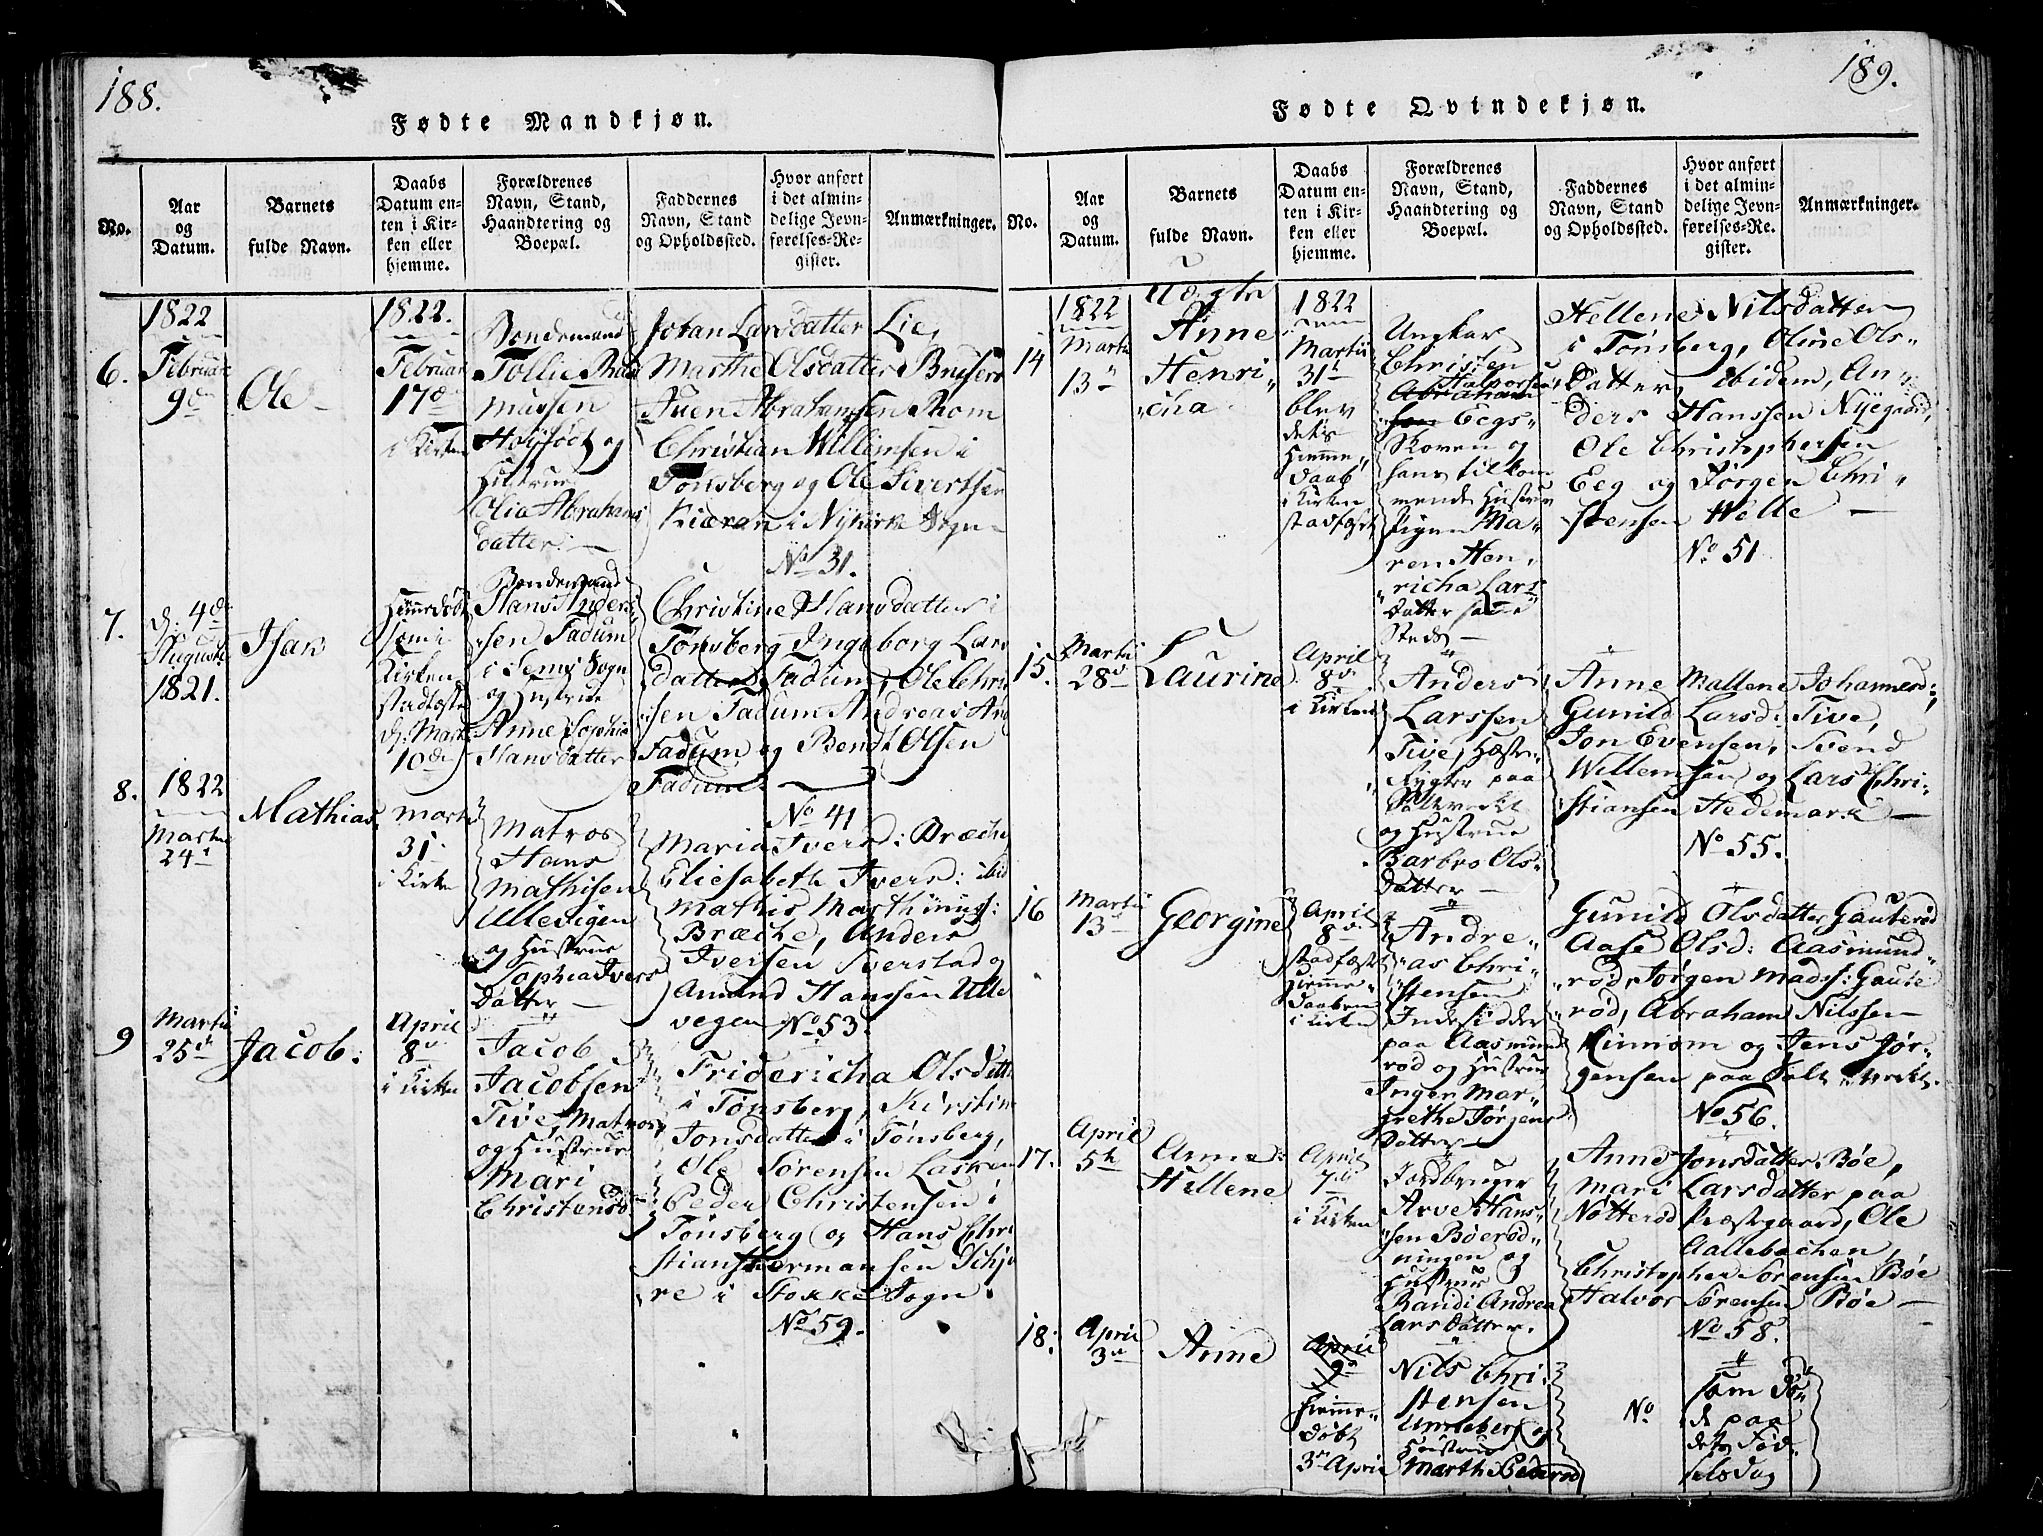 188.
Fødte Mandkjøn.
No.
Aar
og
Datum.
Barnets
fulde Navn.
Daabs
Datum en-
ten i Kir-
ken eller
hjemme.
Forældrenes
Navn, Stand,
Haandtering og
Boepæl.
Faddernes
Navn, Stand
og Opholdssted.
Hvor anført
i det almin-
delige Jevn-
førelses-Re-
gister.
Anmærkninger.
6.
1822
Februar
9de
Ole
1822.
Februar
17de
i Kirken
Bondemand
Tollie Ras
mussen
og
Hustrue
Olia Abrahams
datter.
Johan Larsdatter Lie,
Marthe Olsdatter
Auen Abrahamsen Rom
Christian Willemsen i
Tønsberg og Ole Sivertsen
i Nykirke Sogn
No 31.
7.
d: 4de
Augusti
1821.
Isak
Hjemedøbt
som i
Kirken
stadfæste
d: Marti
10de
Bondemand
Hans Ander
sen Fadum
i Sems Sogn
og Hustrue
Anne Sophia
Hansdatter
Christine Hansdatter i
Tønsberg Ingeborg Lars
datter Fadum, Ole Chri
sen Fadum Andreas And
Fadum og Bendt Olsen
Fadum
No 41
8.
1822
Martii
24
Mathias
Marti
31
i Kirke
Matros
Hans
Mathisen
Ullevigen
og Hustrue
Sophia Ivers
Datter
Maria Iversd: Bræche
Eliesabeth Iversd: ibid
Mathis Marthinuss:
Bræche, Anders
Iversen Sverstad og
Amund Hanssen Ulle
vegen No 53.
9
Martii
25de
Jacob:
April
8de
i Kirken
Jacob
Jacobsen
Tive, Matros
og Hustrue
Mari
Christensd
Fridericha Olsdatt
i Tønsberg, Kirstine
Jonsdatter i Tønsberg,
Ole Sørensen
Peder Christensen i
Tønsberg og Hans Chri
stian Hermansen
re i Stokke Sogn.
No 59.
189.
Fødte Qvindekjøn.
No.
Aar
og
Datum.
Barnets
fulde Navn.
Daabs
Datum en-
ten i Kir-
ken eller
hjemme.
Forældrenes
Navn, Stand,
Haandtering og
Boepæl.
Faddernes
Navn, Stand
og Opholdssted.
Hvor anført
i det almin-
delige Jevn-
førelses-Re-
gister.
Anmærkninger.
14
1822
Martii
13
Uægte
Anne
Henri
cha
1822
Martii
31te
blev
dets
Hjemme
daab
i Kirken
stadfæst
Ungkar
Christen
Halvorsen
Abraham
sen Eegs
Skoven og
hans tilkom
mende Hustrue
Pigen Ma
ren Hen
richa Lars
Datter same
Steds
Hellene Nilsdatter
i Tønsberg, Oline Ols
Datter ibidem, An
ders Hanssen Nyegaard,
Ole Christophersen
Eeg og Jørgen Chri
stensen Welle
No 51
15.
Martii
28de
Laurine
April
8de
i Kirken
Anders
Larssen
Tive, Heste
Rygter paa
Saltverket
og Hustrue
Barbro Ols
Datter
Anne Mallene Johannesd:,
Gunild Larsd: Tive,
Jon Evensen, Svend
Willemsen og Lars Chri
stiansen Hedemark
No 55.
16
Martii
13
Georgine
April
8de
stadfæst
Hjemme
daaben
i Kirken
Andre
as Chri
stensen
Indesidder
paa Aasmund
rød og Hustrue
Inger Mar
grethe Jørgens
Datter
Gunild Olsdatter Gauterød
Aase Olsd: Aasmund
rød, Jørgen Madss: Gaute
rød, Abraham Nilssen
Rinnom og Jens Jør
gensen paa Saltverket.
No 56.
17.
April
5te
Anna
Hellene
April
7de
i Kirken
Jordbruger
Arve Hans
sen Bøerød
ningen og
Hustrue
Randi Andrea
Larsdatter.
Anne Jonsdatter Bøe,
Mari Larsdatter paa
Nøtterød Præstegaard, Ole
Aallebachen,
Christopher Sørensen Bøe
Halvor Sørensen Bøe
No 58.
18:
April
3de
Anne
April
9de
Hjemme
døbt
3de April
Nils Chri
stensen
Unneberg og
Hustrue
Marthe Pedersd
No
som dø
de paa
dets Fød
selsdag